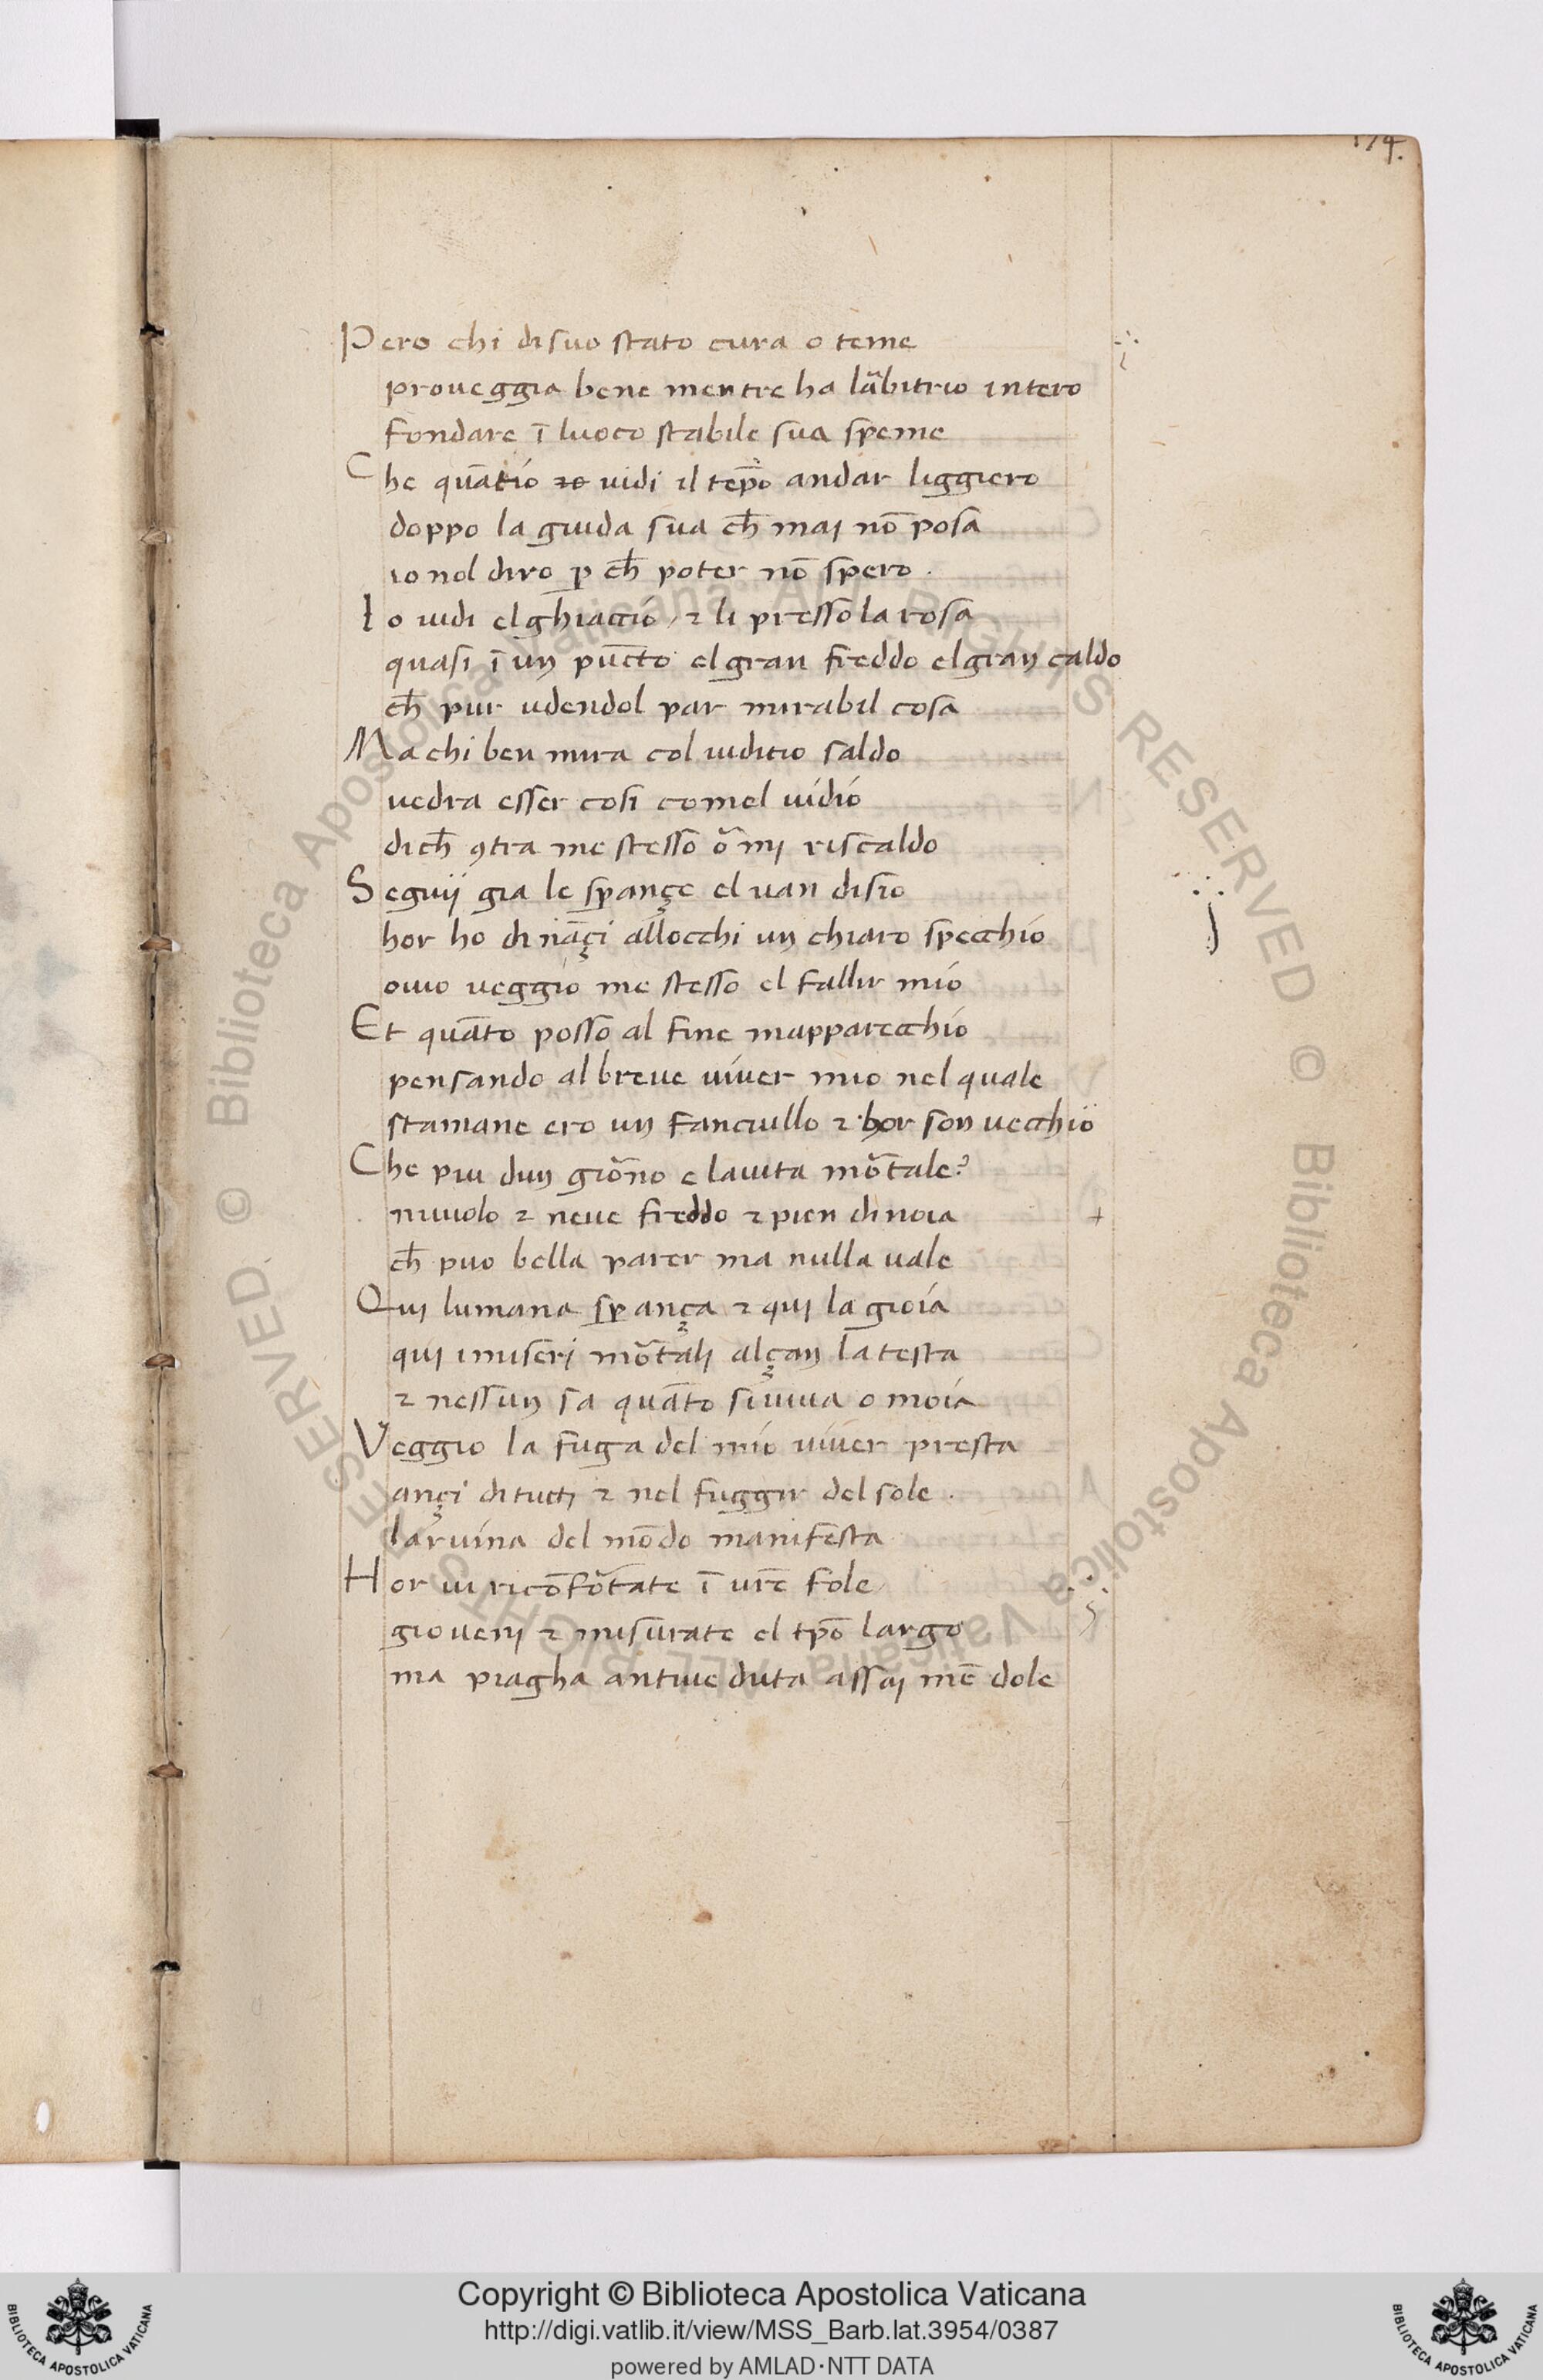 174.
Pero chi di suo stato cura o teme
proueggia bene mentre ha lãbitrio intero
fondare ĩ luoco stabile sua speme
Che quãtio uidi il tep̃o andar liggiero
doppo la guida sua ch̄ mai nō posa
io nol diro ꝑ ch̄ poter nō spero .
Io uidi el ghiaccio / ⁊ li presso la rosa
quasi ĩ un pũcto el gran freddo el gran caldo
ch̄ pur udendol par mirabil cosa
Ma chi ben mira col iuditio saldo
uedra esser cosi comel uidio
di ch̄ ꝯtra me stesso õ mi riscaldo
Seguij gia le sꝑançe el uan disio
hor ho dinãçi allocchi un chiaro specchio
ouio ueggio me stesso el fallir mio
Et quãto posso al fine mapparecchio
pensando al breue uiuer mio nel quale
stamane ero un fanciullo ⁊ hor son uecchio
Che piu dun giõno e la uita mõtale?
nuuolo ⁊ neue freddo ⁊ pien di noia
ch̄ puo bella parer ma nulla uale
Qui lumana sꝑança ⁊ qui la gioia
qui i miseri mõtali alçan la testa
⁊ nessun sa quãto si uiua o moia
Veggio la fuga del mio uiuer presta
ançi di tucti ⁊ nel fuggir del sole .
la ruina del mõdo manifesta
Hor ui ricõfõtate ĩ ur̃e fole
gioueni ⁊ misurate el tp̃o largo
ma piagha antiueduta assai mē dole
Copyright © Biblioteca Apostolica Vaticana
http://digi.vatlib.it/view/MSS_Barb.lat.3954/0387
powered by AMLAD·NTT DATA
BIBLIOTECA APOSTOLICA VATICANA
BIBLIOTECA APOSTOLICA VATICANA